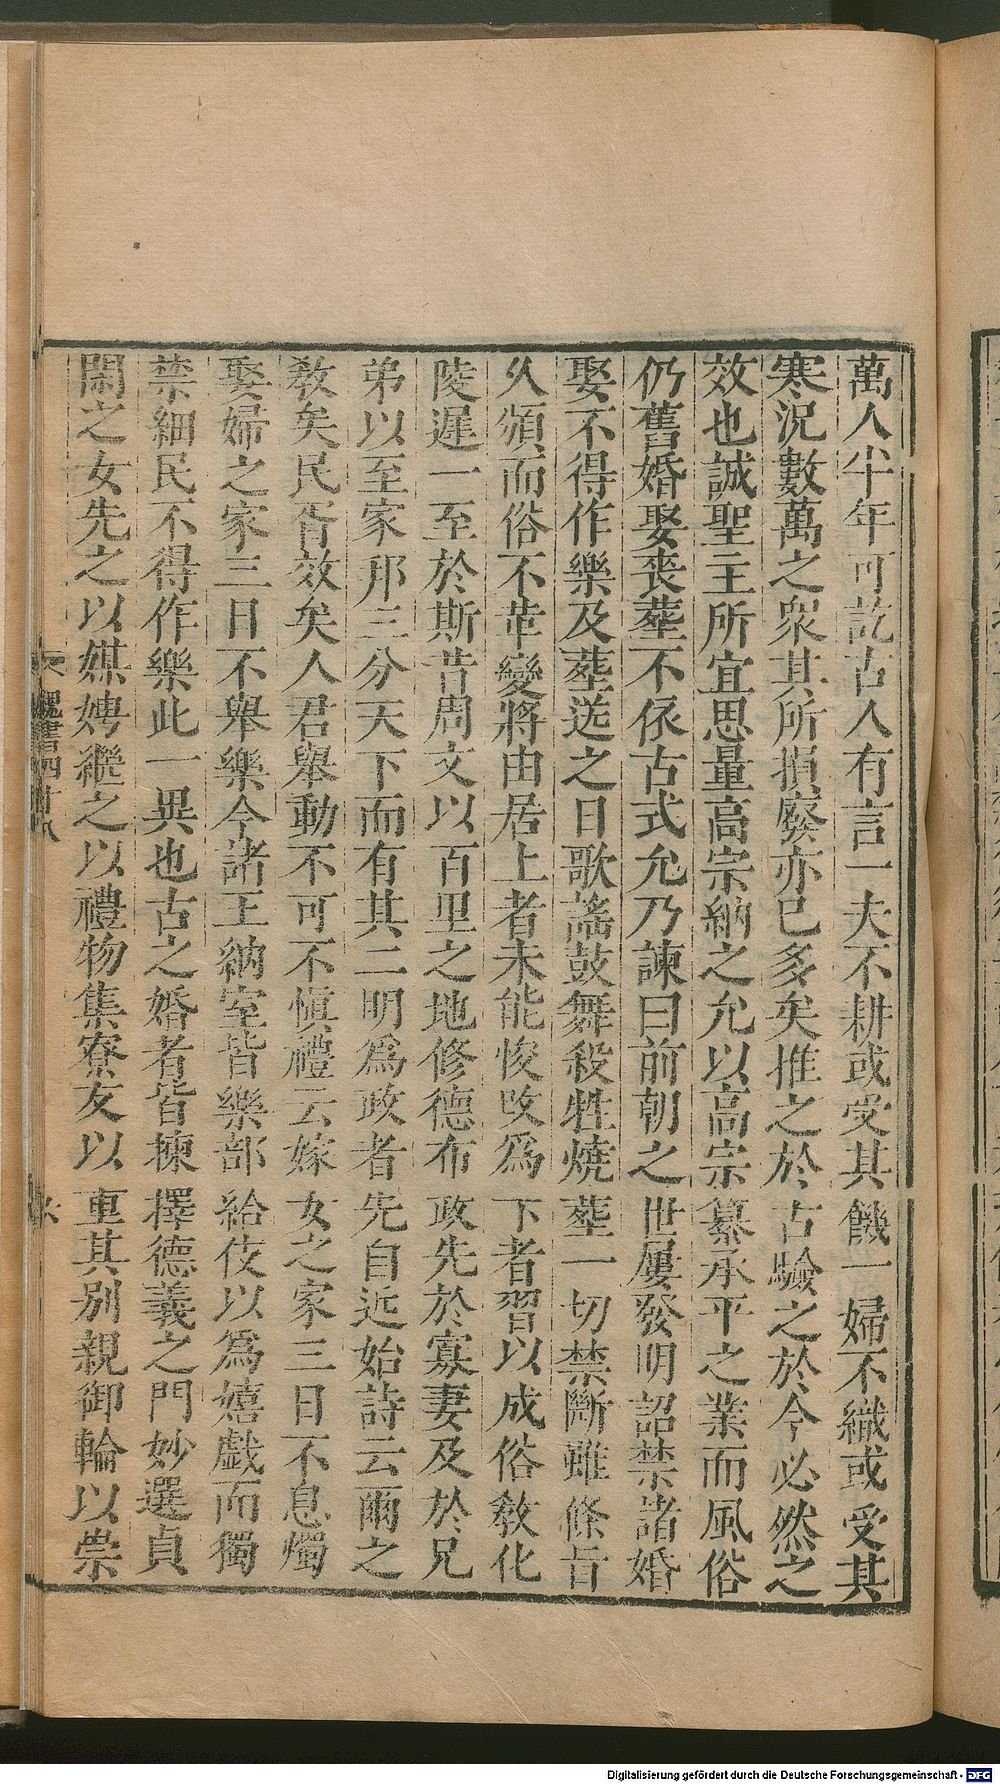 萬人半年可訖古人有言一夫不耕或受其饑一婦不織或受其
寒況數萬之衆其所損廢亦已多矣推之於古驗之於今必然之
效也誠聖主所宜思量高宗納之允以高宗纂承平之業而風俗
仍舊婚娶喪葬不依古式允乃諫曰前朝之世屢發明詔禁諸婚
娶不得作樂及葬送之日歌謠鼓舞殺牲燒葬一切禁斷雖條旨
久頒而俗不革變將由居上者未能悛改爲下者習以成俗敎化
陵遲一至於斯昔周文以百里之地修德布政先於寡妻及於兄
弟以至家邦三分天下而有其二明爲政者先自近始詩云爾之
敎矣民胥效矣人君舉動不可不愼禮云嫁女之家三日不息燭
娶婦之家三日不舉樂今諸王納室皆樂部給伎以爲嬉戲而獨
禁細民不得作樂此一異也古之婚者皆揀擇德義之門妙選貞
閑之女先之以媒娉繼之以禮物集寮友以重其别親御輪以崇
魏書四十八
六
Digitalisierung gefördert durch die Deutsche Forschungsgemeinschaft - DFG